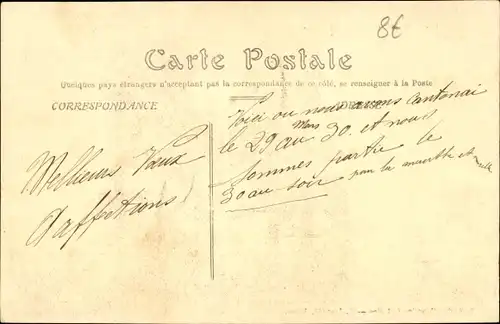 8€
Carte Postale
Quelques pays étrangers n'acceptant pas la correspondance de ce côté, se renseigner à la Poste
CORRESPONDANCE
ADRESSE
Voici ou nous avons Cantonai
le 29 Mars au 30. et nous
sommes partie le
30 au soir pour la meurthe et
Meilleurs Vœux
D'affetions